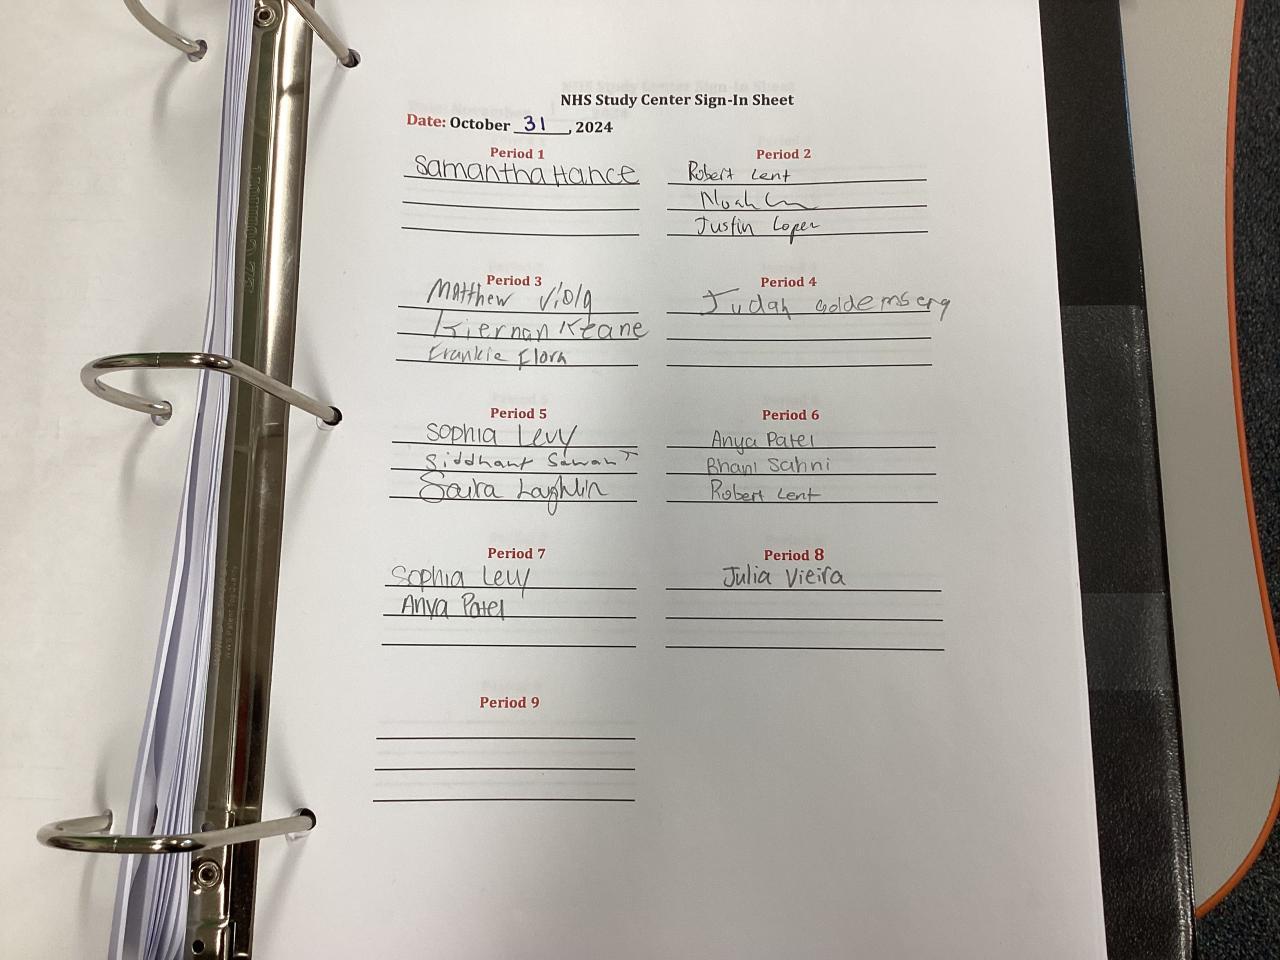 NHS Study Center Sign-In Sheet
Date: October 31, 2024
Period 1
Samantha Hance
Period 2
Robert Lent
Noah
Justin Loper
Period 3
Matthew Viola
Kiernan Keane
Frankie Flora
Period 4
Judah Goldemserg
Period 5
Sophia Levy
Siddhant Sawant
Saira Laghlin
Period 6
Anya Patel
Bhani Sahni
Robert Lent
Period 7
Sophia Levy
Anya Patel
Period 8
Julia Vieira
Period 9